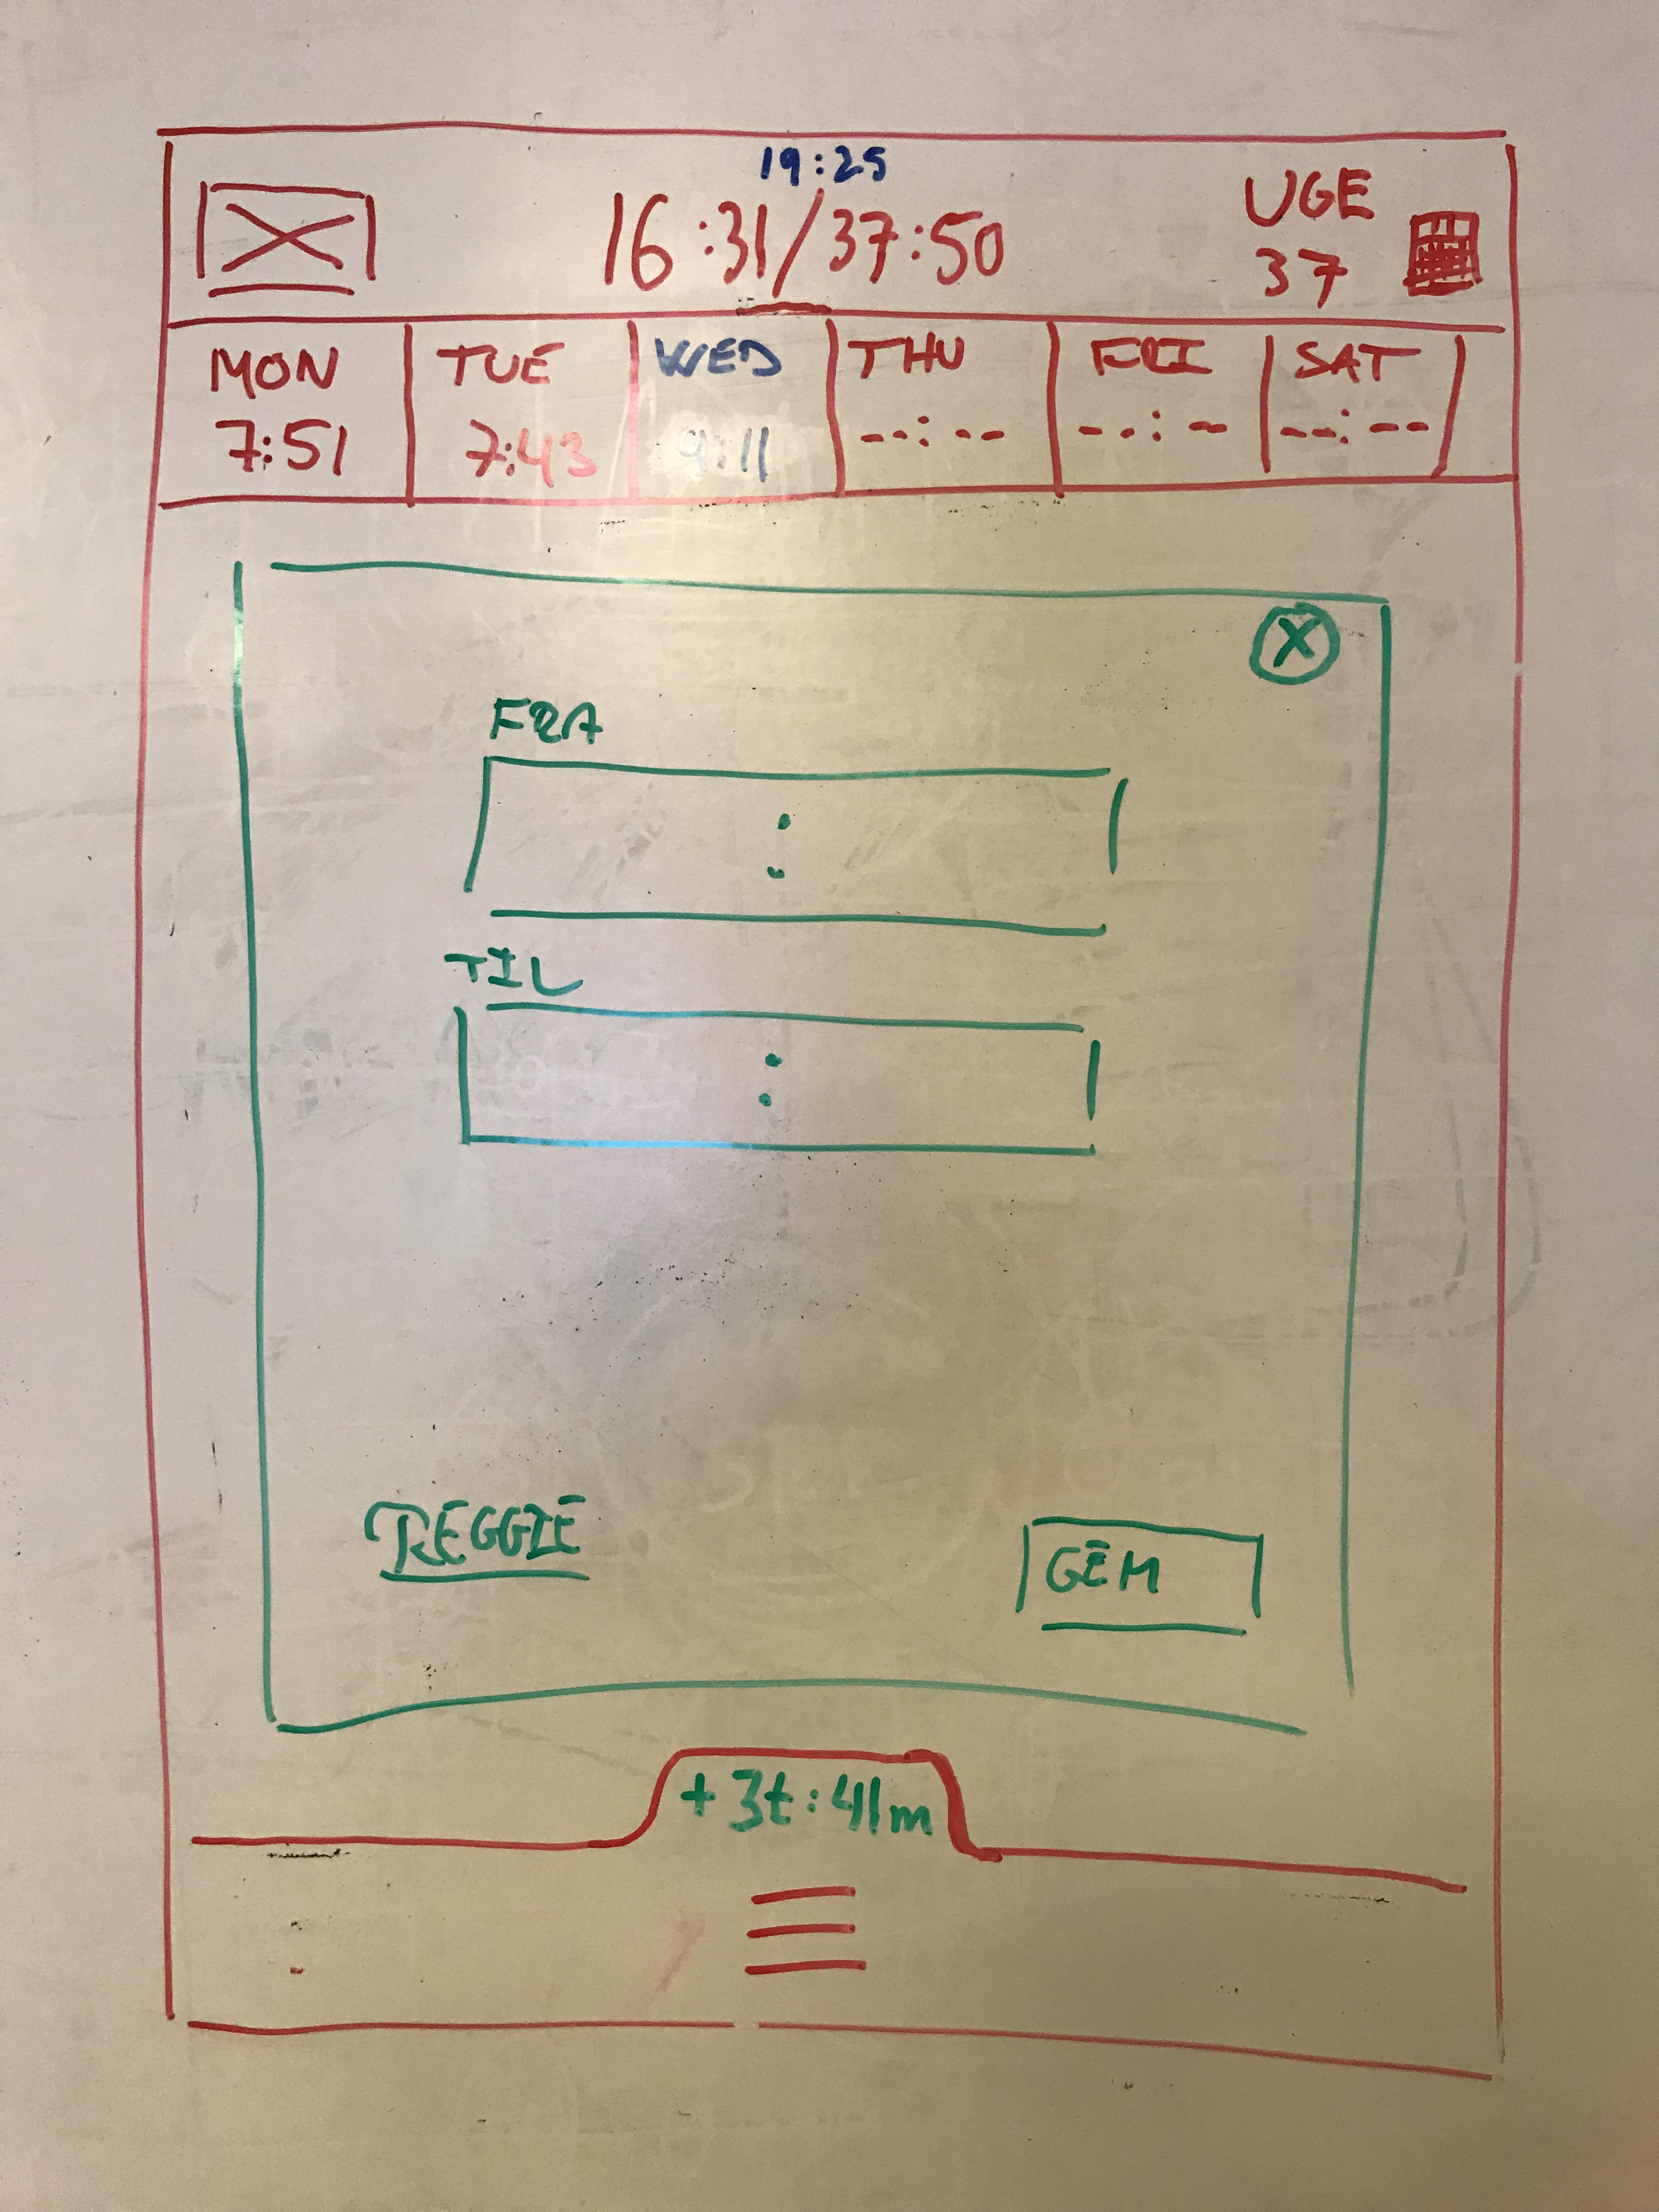 19:25
16:31/37:50
UGE
37
MON TUE WED THU FRI SAT
7:51 7:43 9:11 --:-- --:-- --:--
X
FRA
:
TIL
:
REGGIE
GEM
+3t:41m